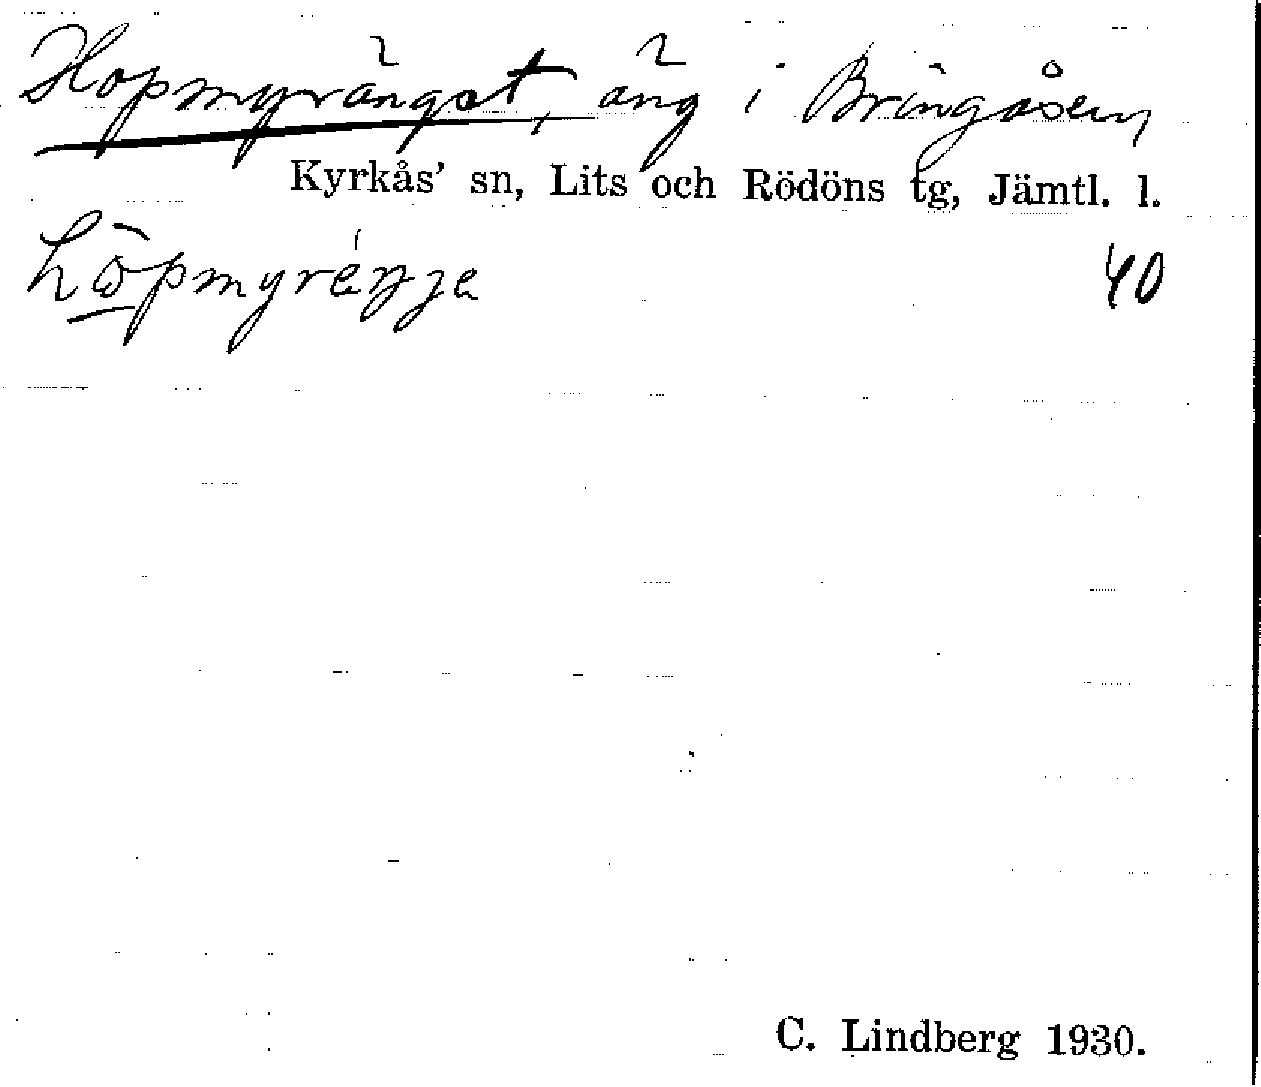 Hopmyränget, äng i Bringåsen
Kyrkås' sn, Lits och Rödöns tg, Jämtl. l.
40
C. Lindberg 1930.